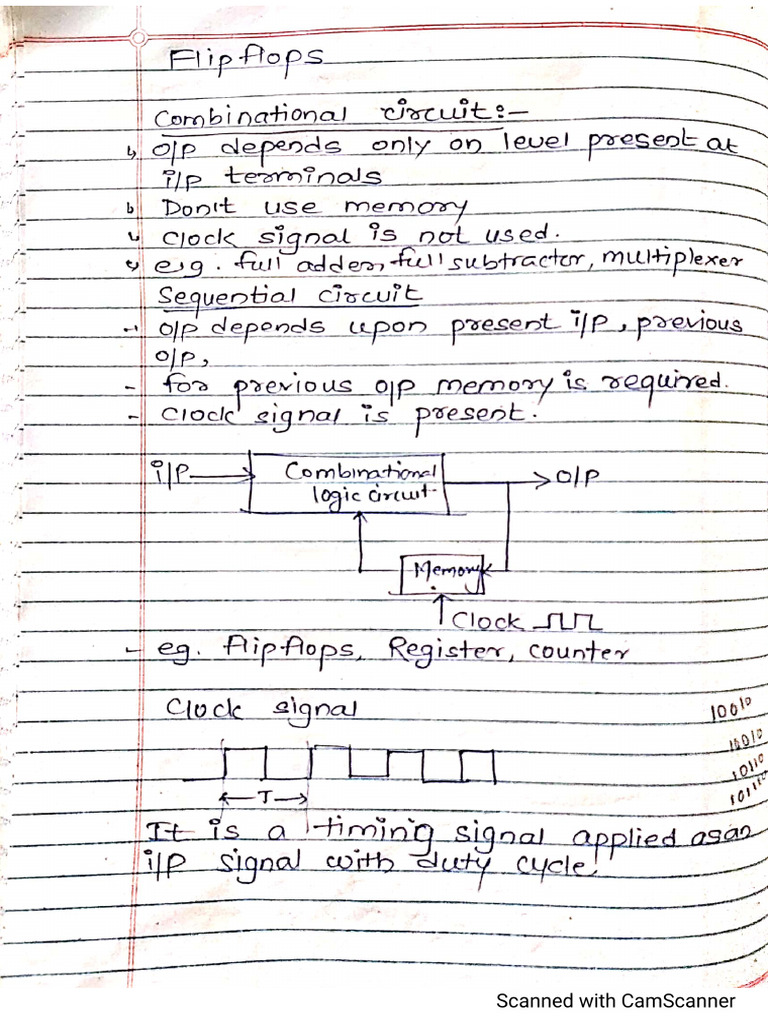 Flipflops
Combinational circuit:-
O/P depends only on level present at
i/p terminals
Don't use memory
Clock signal is not used.
e.g. full adder, full subtractor, multiplexer
Sequential circuit
- O/P depends upon present i/p, previous
O/P,
- for previous O/P memory is required.
- Clock signal is present.
i/P
Combinational
logic circuit
O/P
Memory
Clock
- eg. flipflops, Register, counter
Clock signal
10010
10010
10110
T
It is a timing signal applied as an
i/p signal with duty cycle
Scanned with CamScanner